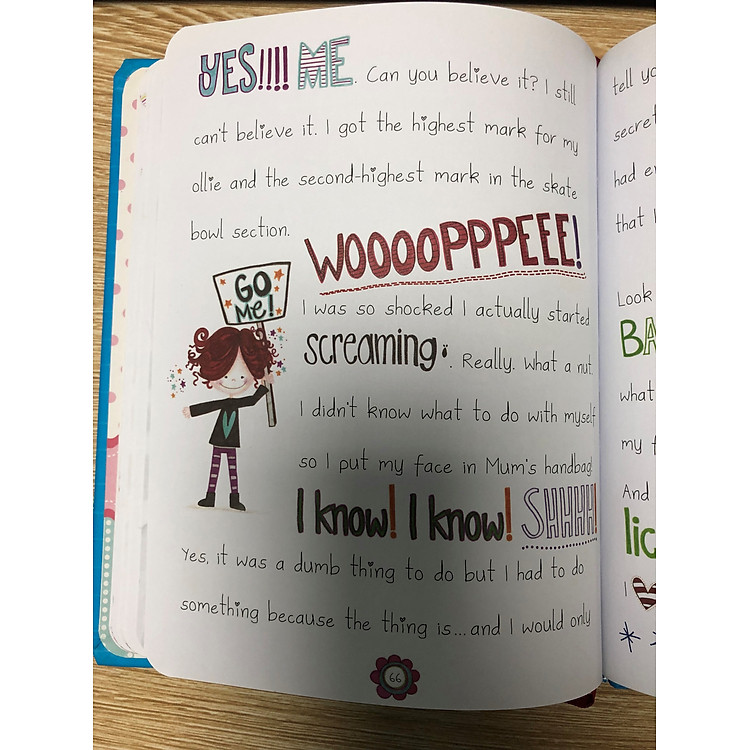 YES!!!! ME. Can you believe it? I still
can't believe it. I got the highest mark for my
ollie and the second-highest mark in the skate
bowl section. WOOOOPPPEEE!
GO
ME!
I was so shocked I actually started
screaming. Really. What a nut.
I didn't know what to do with myself
so I put my face in Mum's handbag!
I know! I know! SHHHH!
Yes, it was a dumb thing to do but I had to do
something because the thing is... and I would only
66
tell
secret
had
that
Look
what
my
And
I